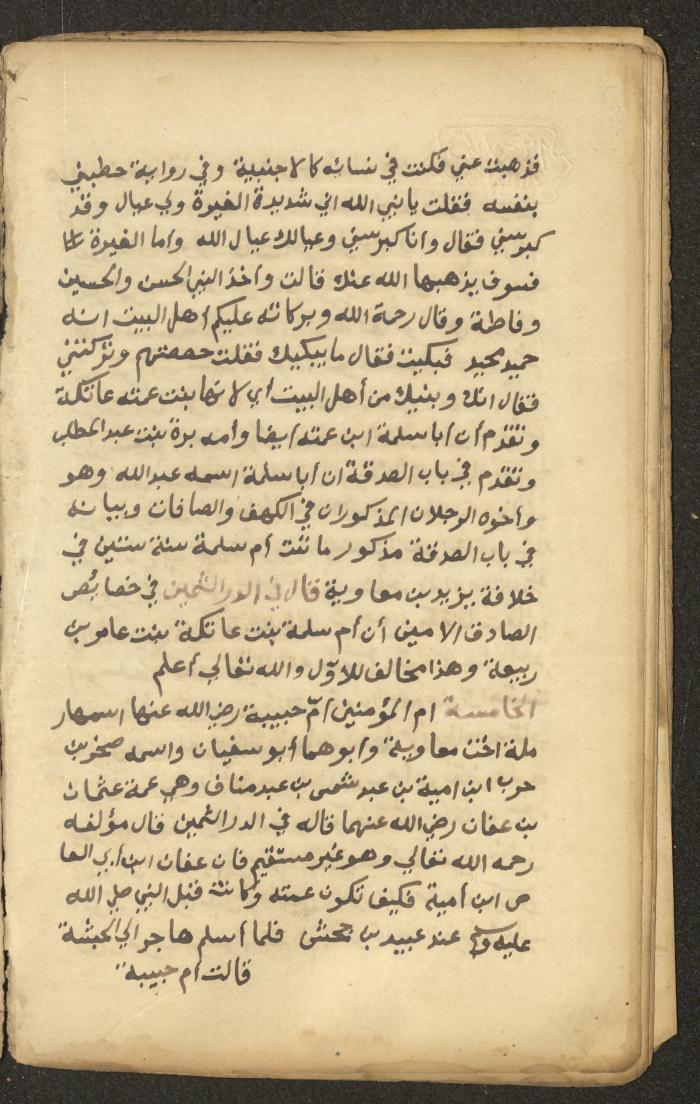 فذهبت عني فكنت في نسائه كالاجنبية وفي رواية خطبني
بنفسه فقلت يا نبي الله اني شديدة الغيرة ولي عيال وقد
كبر سني فقال وانا كبر سني وعيالك عيال الله واما الغيرة
فسوف يذهبها الله عنك قالت وأخذ النبي الحسن والحسين
وفاطمة وقال رحمة الله وبركاته عليكم أهل البيت انه
حميد مجيد فبكيت فقال ما يبكيك فقلت خصصتهم وتركتني
فقال انك وبنتك من أهل البيت أي لانها بنت عمته عاتكة
وتقدم أن أبا سلمة ابن عمته أيضا وأمه برة بنت عبد المطلب
وتقدم في باب الصدقة ان أبا سلمة اسمه عبد الله وهو
وأخوه الرجلان المذكوران في الكهف والصافات وبيانه
في باب الصدقة مذكور ماتت أم سلمة سنة ستين في
خلافة يزيد بن معاوية قال في الدر الثمين في خصايص
الصادق الامين أن أم سلمة بنت عاتكة بنت عامر بن
ربيعة وهذا مخالف للاول والله تعالى أعلم
الخامسة ام المؤمنين أم حبيبة رضي الله عنها اسمها ر
ملة اخت معاوية وأبوهما أبو سفيان واسمه صخر بن
حرب ابن امية بن عبد شمس بن عبد مناف وهي عمة عثمان
بن عفان رضي الله عنهما قاله في الدر الثمين قال مؤلفه
رحمه الله تعالى وهو غير مستقيم فان عفان ابن أبي العا
ص ابن أمية فكيف تكون عمته وكانت قبل النبي صلى الله
عليه وسلم عند عبيد بن جحش فلما أسلم هاجر الى الحبشة
قالت أم حبيبة